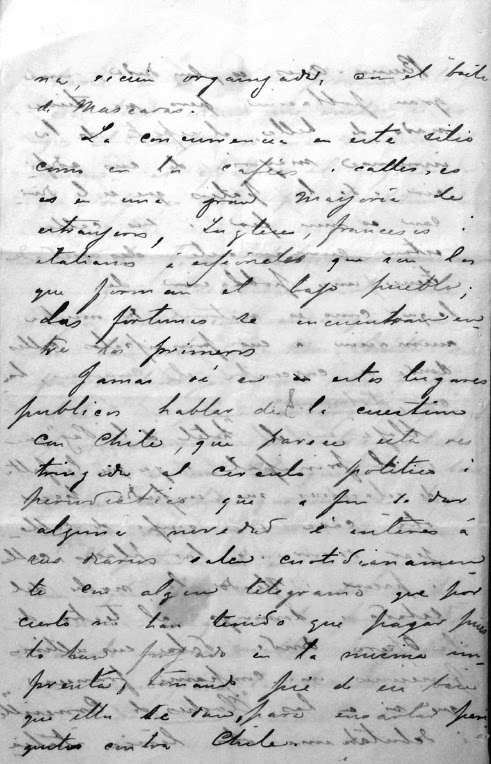 na, recien organizada, en el baile
de Mascaras.
La concurrencia en este sitio
como en los cafées i calles, es
es en una gran mayoria de
estranjeros, Ingleses, franceses i
italianos i españoles que son los
que forman el bajo pueblo;
las fortunas se encuentran en
tre los primeros
Jamas oí en en estos lugares
publicos hablar de la cuestion
con Chile, que parece está res
trinjida al circulo politico i
periodistico que a fin de dar
alguna novedad é interes á
sus diarios salen cuotidianamen
te con algun telegrama que por
cierto no han tenido que pagar pues
to han forjado en la misma im
prenta, tomando pié de
que ellos se dan, para ensartar
contra Chile.